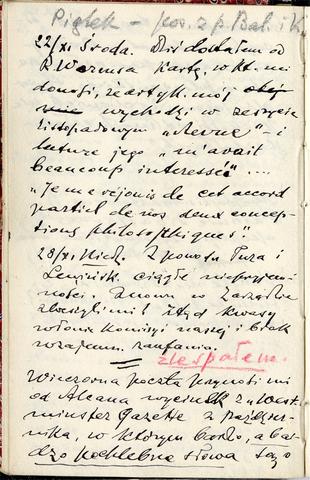 Piątek – pos. z p. Bal. i K
22/XI Środa. Dziś dostałem od
R. Wormsa kartę, w kt. mi
donosi, że artyk. mój
wychodzi w zeszycie
listopadowym „Revue" – i
lecture jego „m'avait
beaucoup interessé" ....
„Je me rejouis de cet accord
partiel de nos deux concep-
tions philosophiques".
28/XI Niedz. Z powodu Tura i
Lewińsk. ciągłe nieprzyjem-
ności. Znowu w Zarządzie
i stąd kwasy
w łonie Komisyi naszej i brak
wzajemn. zaufania.
źle spałem.
Wieczorna poczta przynosi mi
od Alcana wycinek z „West-
minster Gazette" z paździer-
nika, w którym bardzo, a bar-
dzo pochlebne słowa są o